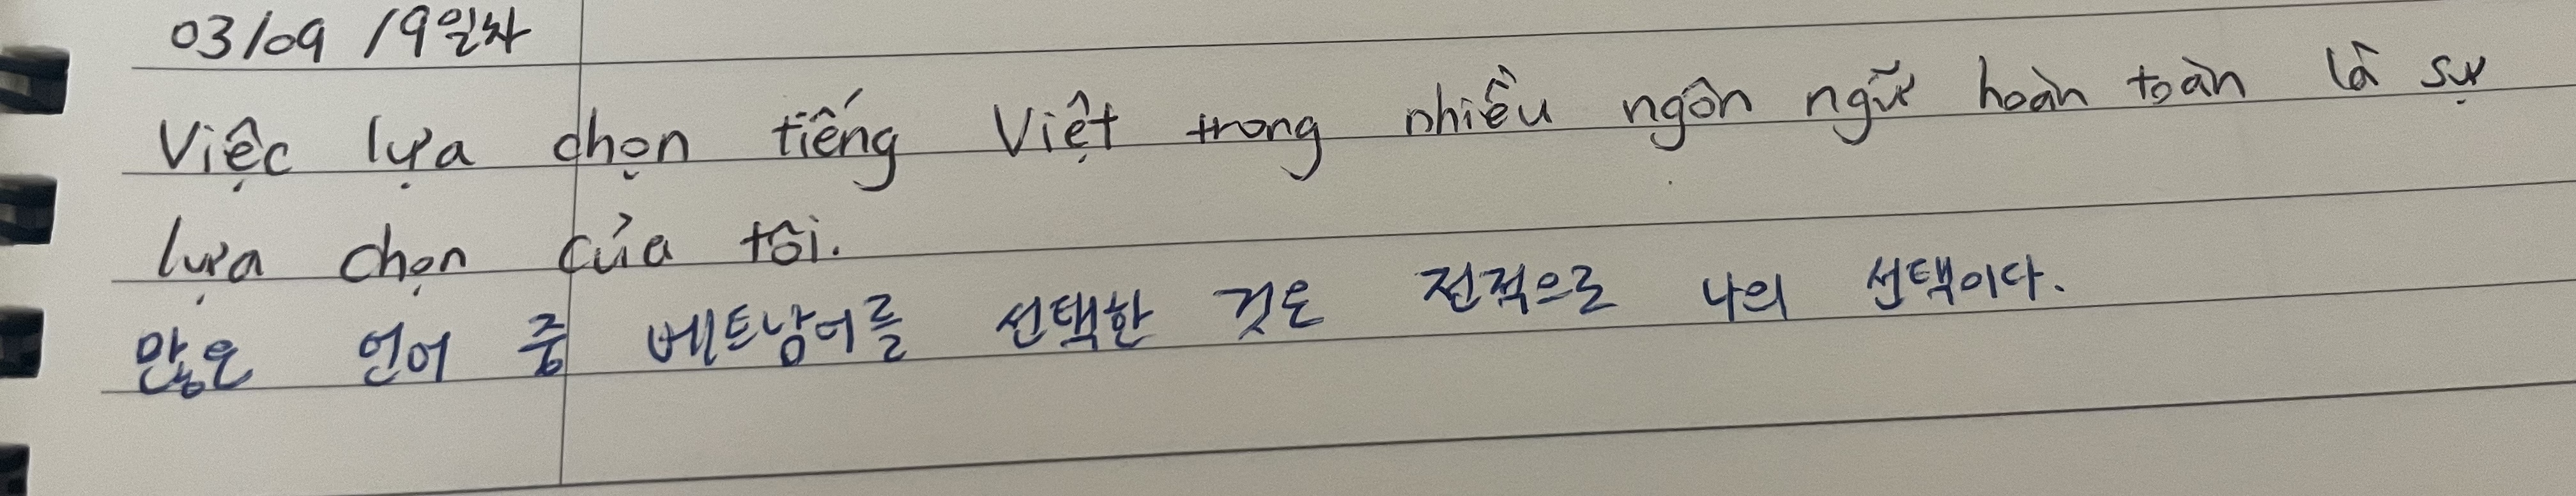 03/09 19일차
Việc lựa chọn tiếng Việt trong nhiều ngôn ngữ hoàn toàn là sự
lựa chọn của tôi.
많은 언어 중 베트남어를 선택한 것은 전적으로 나의 선택이다.